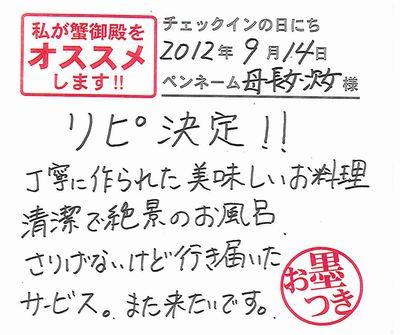 私が蟹御殿を
オススメ
します!!
チェックインの日にち
2012年9月14日
ペンネーム母・長女・次女様
リピ決定!!
丁寧に作られた美味しいお料理
清潔で絶景のお風呂
さりげないけど行き届いた
サービス。また来たいです。
お墨つき